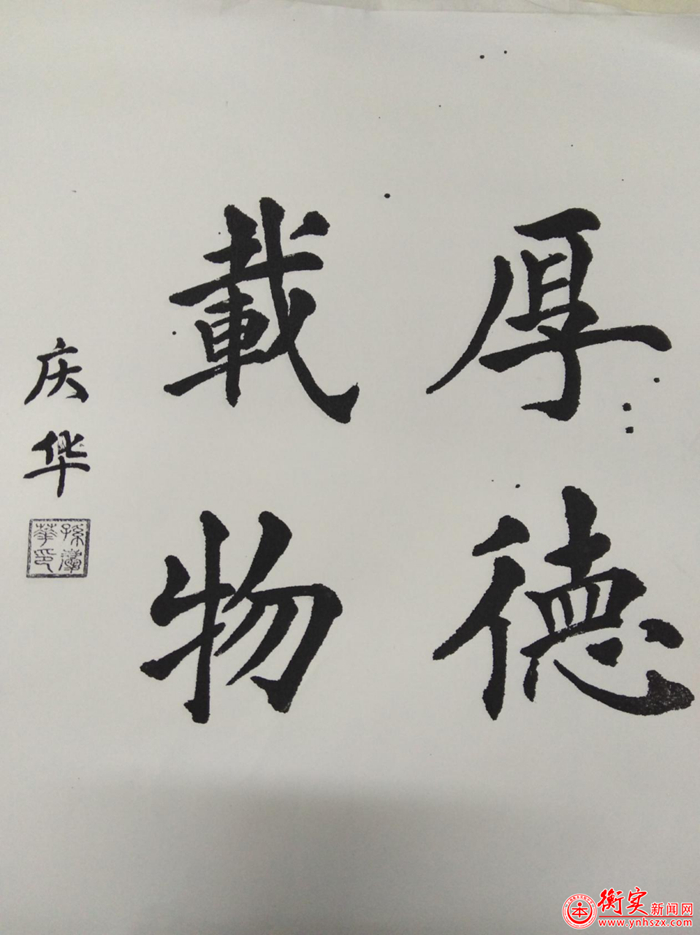 厚德
載物
庆华
孫慶
華印
衡实新闻网
www.ynhszx.com